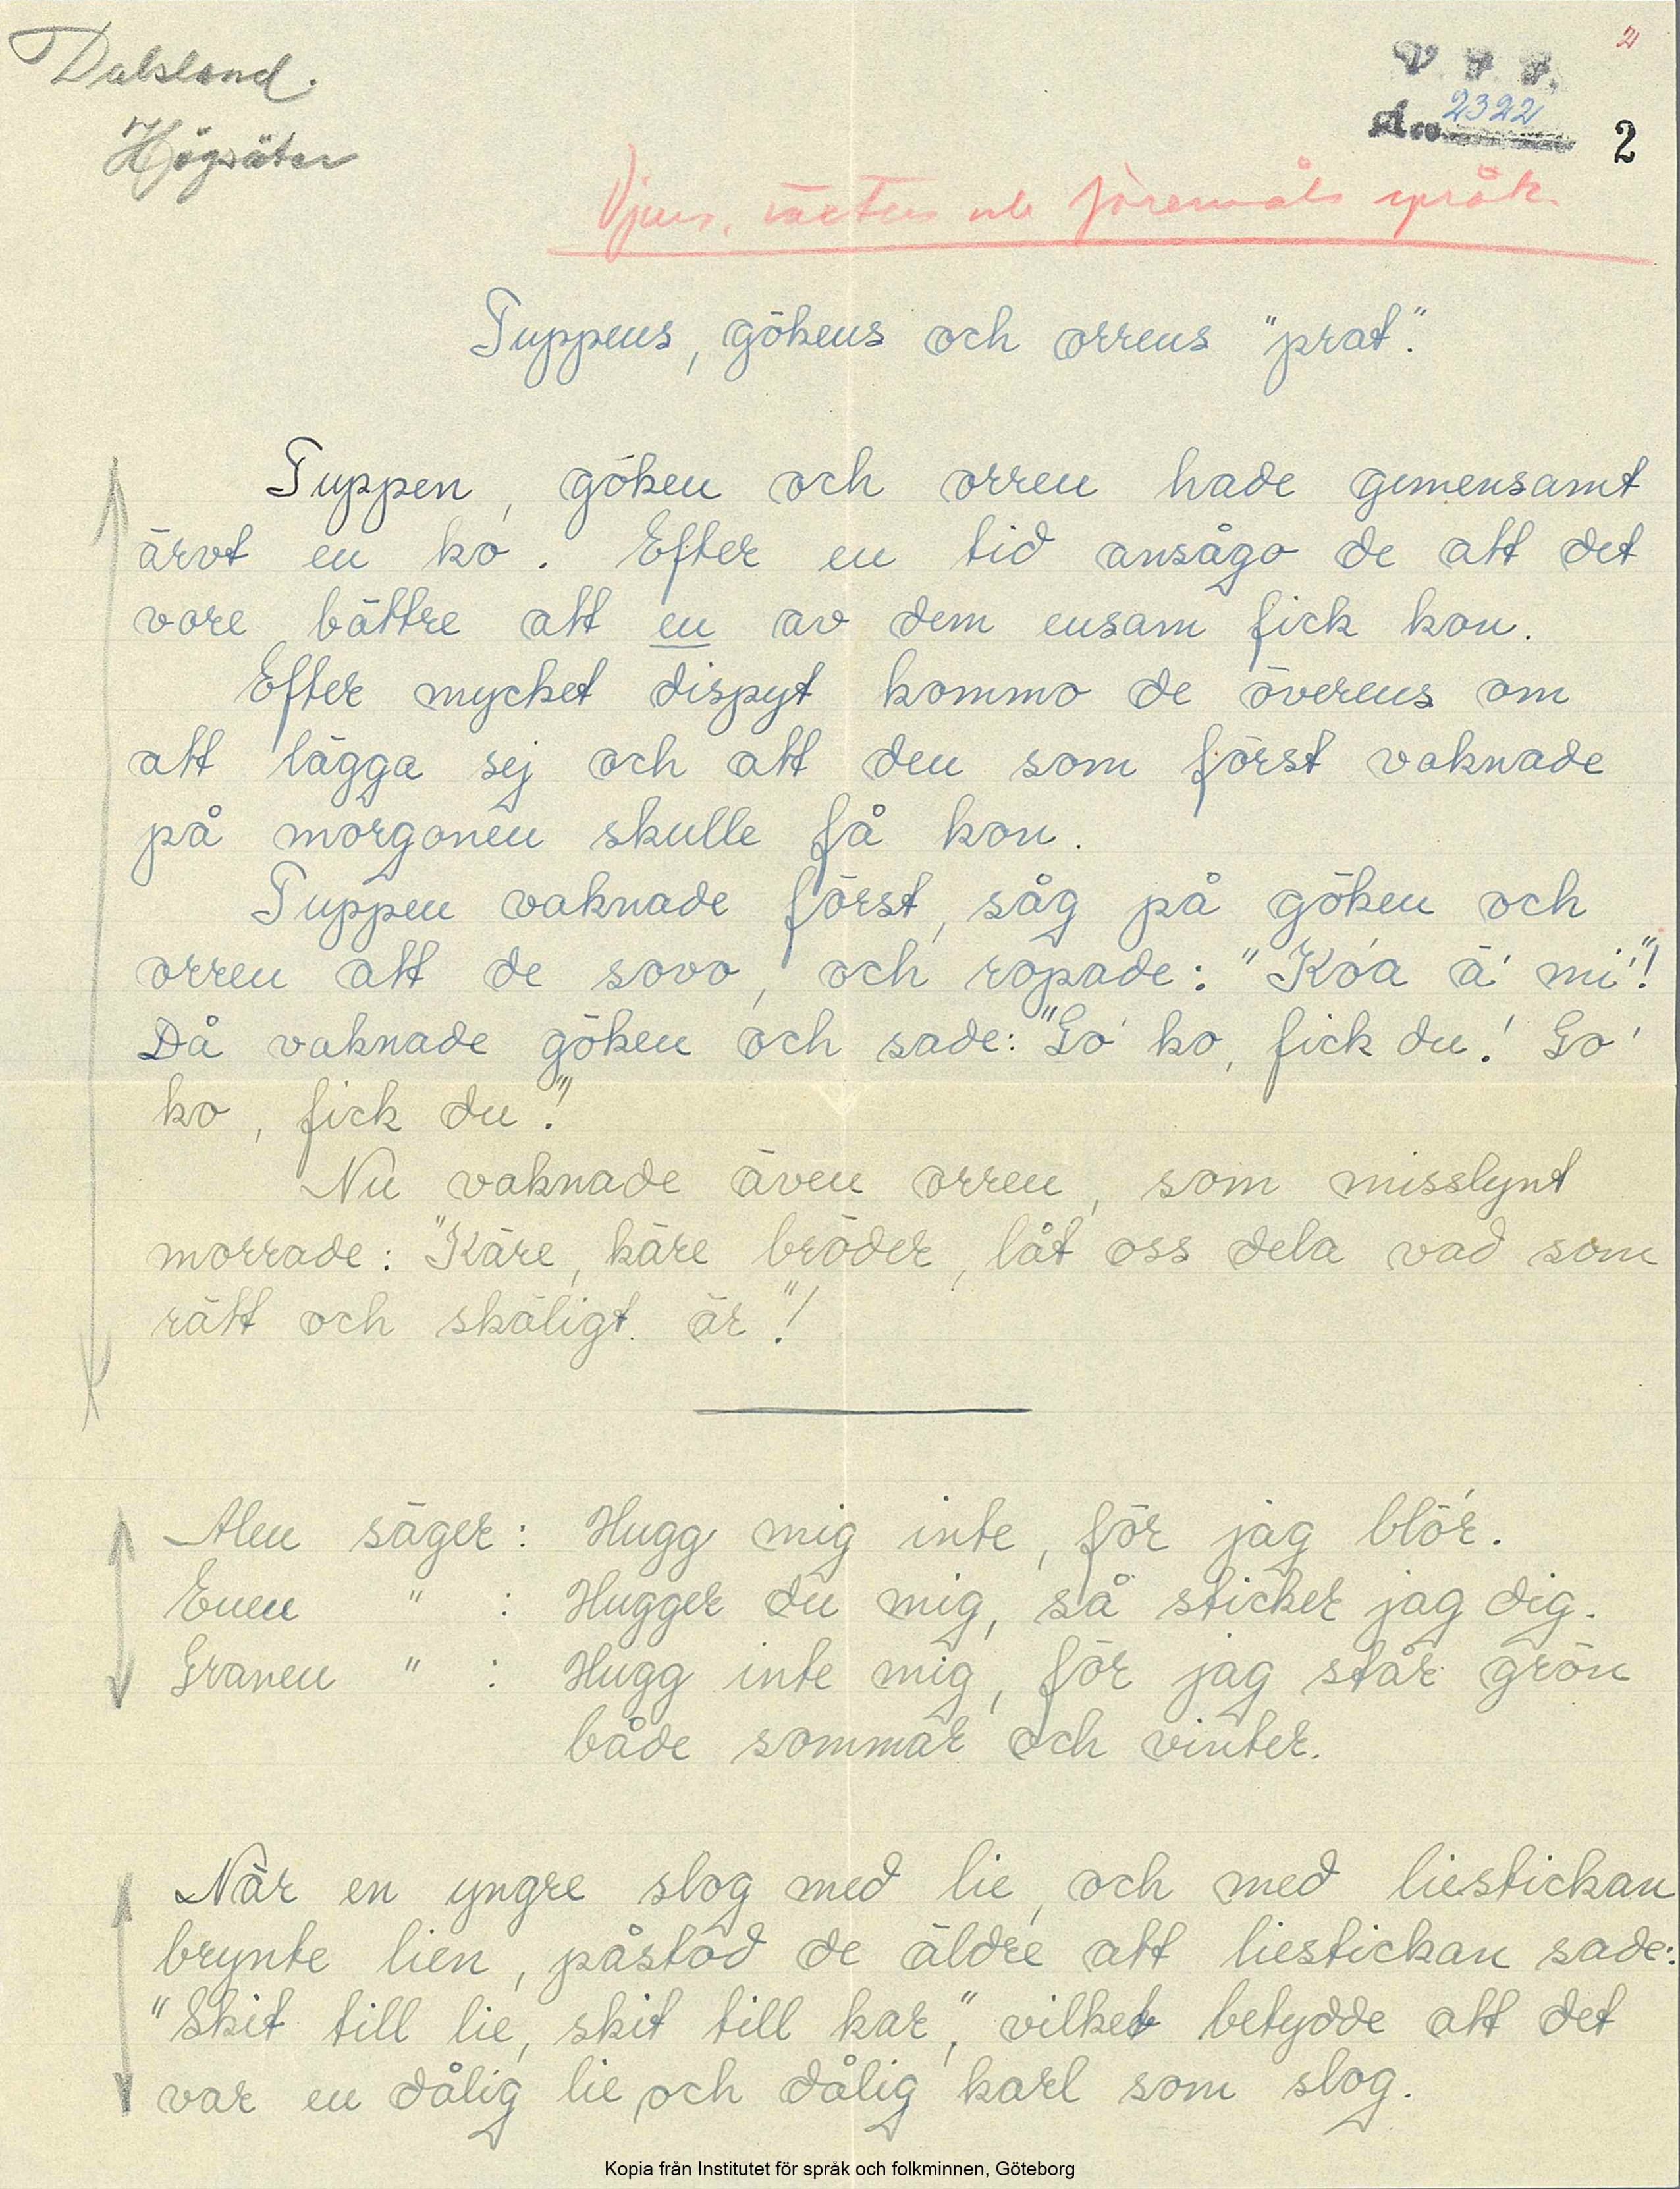 Dalsland.
Högsäter
2
V. F. F.
2322
2
Djurs, växters och föremåls språk.
Tuppens, gökens och orrens "prat".
Tuppen, göken och orren hade gemensamt
ärvt en ko. Efter en tid ansågo de att det
vore bättre att en av dem ensam fick kon.
Efter mycket dispyt kommo de överens om
att lägga sej och att den som först vaknade
på morgonen skulle få kon.
Tuppen vaknade först, såg på göken och
orren att de sovo, och ropade: "Kóa ä' mi'"!
Då vaknade göken och sade: "Go' ko, fick du! Go'
ko, fick du"!
Nu vaknade även orren, som misslynt
morrade: "Käre, käre bröder, låt oss dela vad som
rätt och skäligt är"!
Alen säger: Hugg mig inte, för jag blör.
Enen " : Hugger du mig, så sticker jag dig.
Granen " : Hugg inte mig, för jag står grön
både sommar och vinter.
När en yngre slog med lie, och med liestickan
brynte lien, påstod de äldre att liestickan sade:
"Skit till lie, skit till kar", vilket betydde att det
var en dålig lie och dålig karl som slog.
Kopia från Institutet för språk och folkminnen, Göteborg